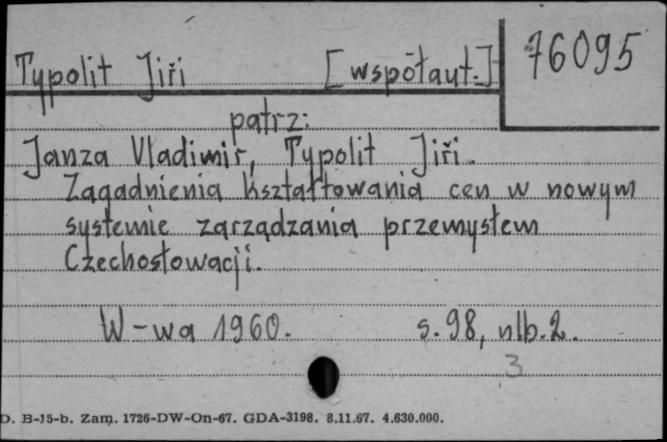 Typolit Jiří [współaut.] 76095
patrz:
Janza Vladimir, Typolit Jiří.
Zagadnienia kształtowania cen w nowym
systemie zarządzania przemysłem
Czechosłowacji.
W-wa 1960. s. 98, nlb. 2.
3
D. B-15-b. Zam. 1726-DW-On-67. GDA-3198. 8.11.67. 4.630.000.